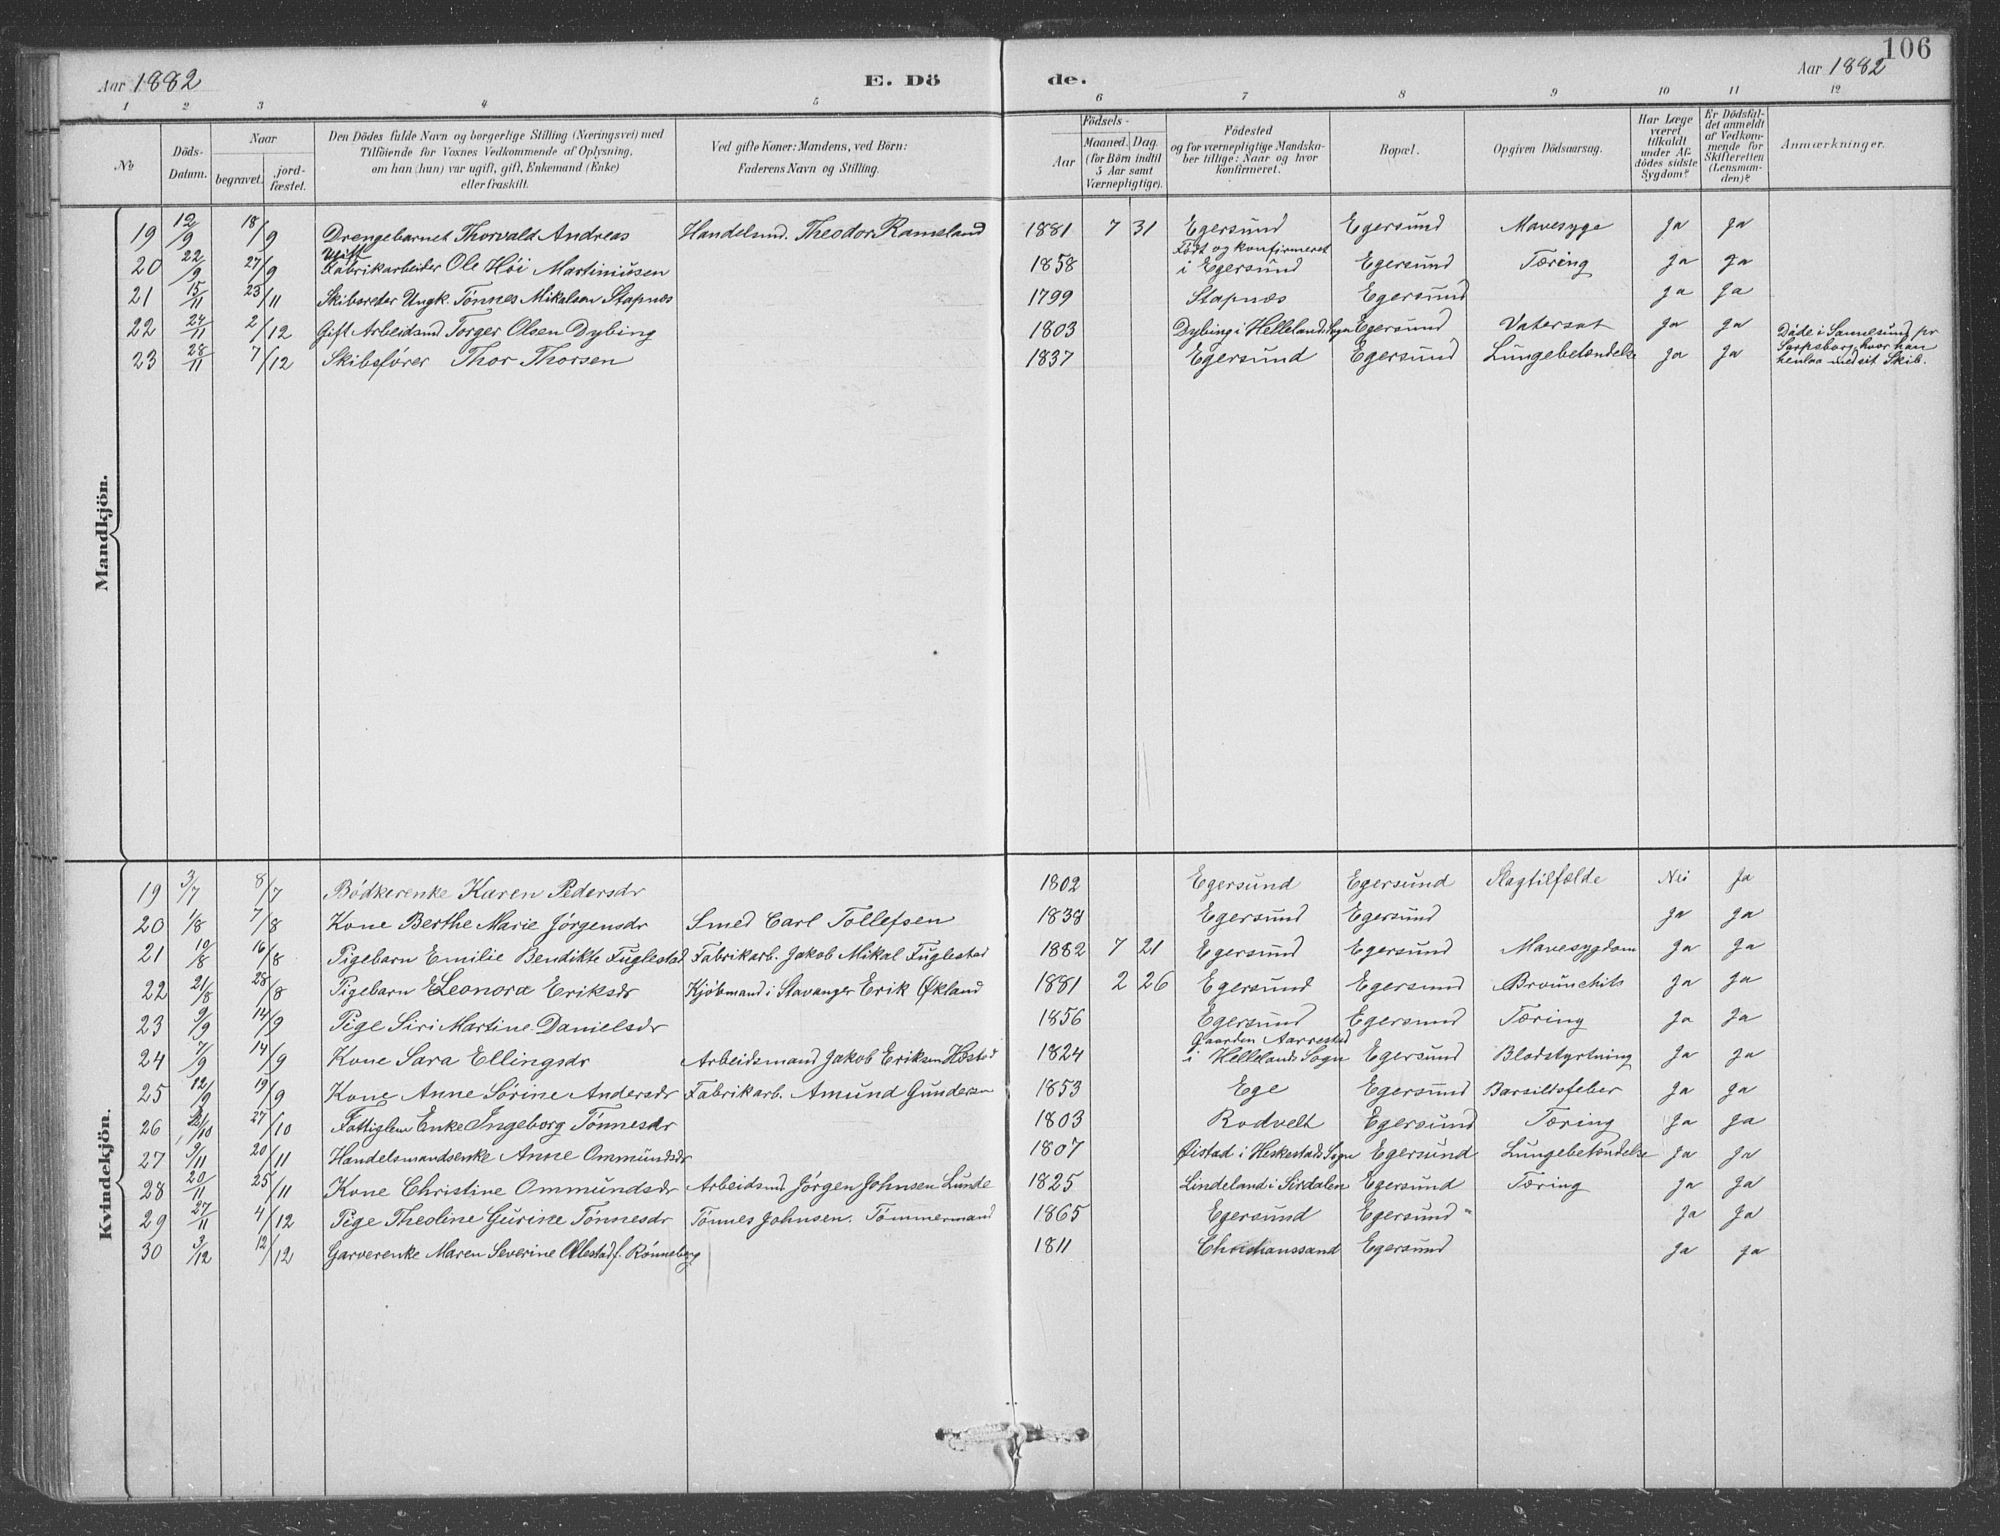 106
Aar 1882 E. Dö de. Aar 1882
1 2 3 4 5 6 7 8 9 10 11 12
No
Döds-Datum.
Naar
begravet.
jordfæstet.
Den Dödes fulde Navn og borgerlige Stilling (Næringsvei) med
Tilföiende for Voxnes Vedkommende af Oplysning,
om han (hun) var ugift, gift, Enkemand (Enke)
eller fraskilt.
Ved gifte Koner: Mandens, ved Börn:
Faderens Navn og Stilling.
Födsels-
Aar
Maaned. Dag.
(for Börn indtil
5 Aar samt
Værnepligtige).
Födested
og for værnepligtige Mandskaber
tillige: Naar og hvor
konfirmeret.
Bopæl.
Opgiven Dödsaarsag.
Har Læge
været
tilkaldt
under Afdödes
sidste
Sygdom?
Er Dödsfaldet
anmeldt
af Vedkommende
for
Skifteretten
(Lensmanden)?
Anmærkninger.
Mandkjön.
19 12/9 18/9 Drengebarnet Thorvald Andreas Handelsmd. Theodor Rameland 1881 7 31 Egersund Egersund Mavesyge Ja Ja
20 22/9 27/9 Ugift Fabrikarbeider Ole Höi Martiniusen 1858 Födt og konfirmeret i Egersund Egersund Tæring Ja Ja
21 15/11 23/11 Skibsreder Ungk. Tönnes Mikalsen Stapnæs 1799 Stapnæs Egersund Ja Ja
22 24/11 2/12 Gift Arbeidsmd Torger Olsen Dybing 1803 Dybing i Helleland Sogn Egersund Vatersot Ja Ja
23 28/11 7/12 Skibsförer Thor Thorsen 1837 Egersund Egersund Lungebetændelse Ja Ja Döde i Sannesund pr Sarpsborg, hvor han henlaa med sit Skib.
Kvindekjön.
19 3/7 8/7 Bödkerenke Karen Pedersdr 1802 Egersund Egersund Slagtilfælde Nei Ja
20 1/8 7/8 Kone Berthe Marie Jörgensdr Smed Carl Tollefsen 1838 Egersund Egersund Ja Ja
21 10/8 16/8 Pigebarn Emilie Bendikte Fuglestad Fabrikarb. Jakob Mikal Fuglestad 1882 7 21 Egersund Egersund Mavesygdom Ja Ja
22 21/8 28/8 Pigebarn Eleonora Eriksdr Kjöbmand i Stavanger Erik Økland 1881 2 26 Egersund Egersund Brounchits Ja Ja
23 9/9 14/9 Pige Siri Martine Danielsdr 1856 Egersund Egersund Tæring Ja Ja
24 7/9 14/9 Kone Sara Ellingsdr Arbeidsmand Jakob Eriksen Höstad 1824 Gaarden Aarrestad i Hellelands Sogn Egersund Blodstyrtning Ja Ja
25 12/9 19/9 Kone Anne Sörine Andersdr Fabrikarb. Amund Gundersen 1853 Ege Egersund Barsilsfeber Ja Ja
26 21/10 27/10 Fattiglem Enke Ingeborg Tönnesdr 1803 Rodvelt Egersund Tæring Ja Ja
27 9/11 20/11 Handelsmandsenke Anne Ommundsdr 1807 Øistad i Heskestads Sogn Egersund Lungebetændelse Ja Ja
28 20/11 25/11 Kone Christine Ommundsdr Arbeidsmd Jörgen Johnsen Lunde 1825 Lindeland i Sirdalen Egersund Tæring Ja Ja
29 27/11 4/12 Pige Theoline Gurine Tönnesdr Tönnes Johnsen. Tömmermand 1865 Egersund Egersund Ja Ja
30 3/12 12/12 Garverenke Maren Severine Ollestad f. Rönneberg 1811 Christianssand Egersund Ja Ja